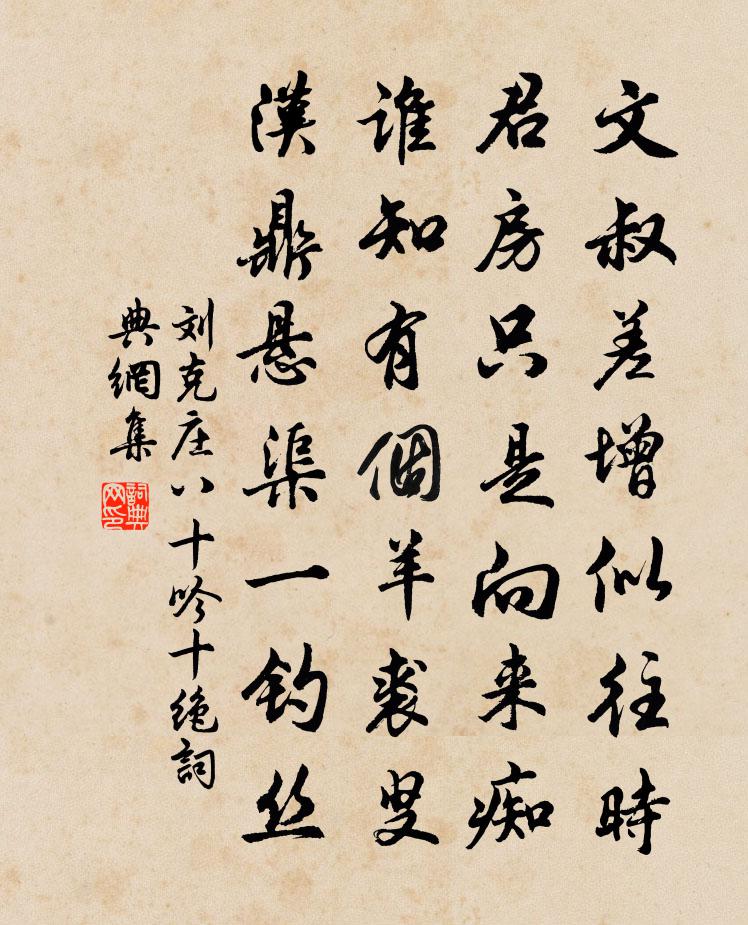 文叔差增似往時
君房只是向来痴
誰知有個羊裘叟
漢鼎悬渠一钓丝
刘克庄八十吟十绝詞
典網集
詞典网印